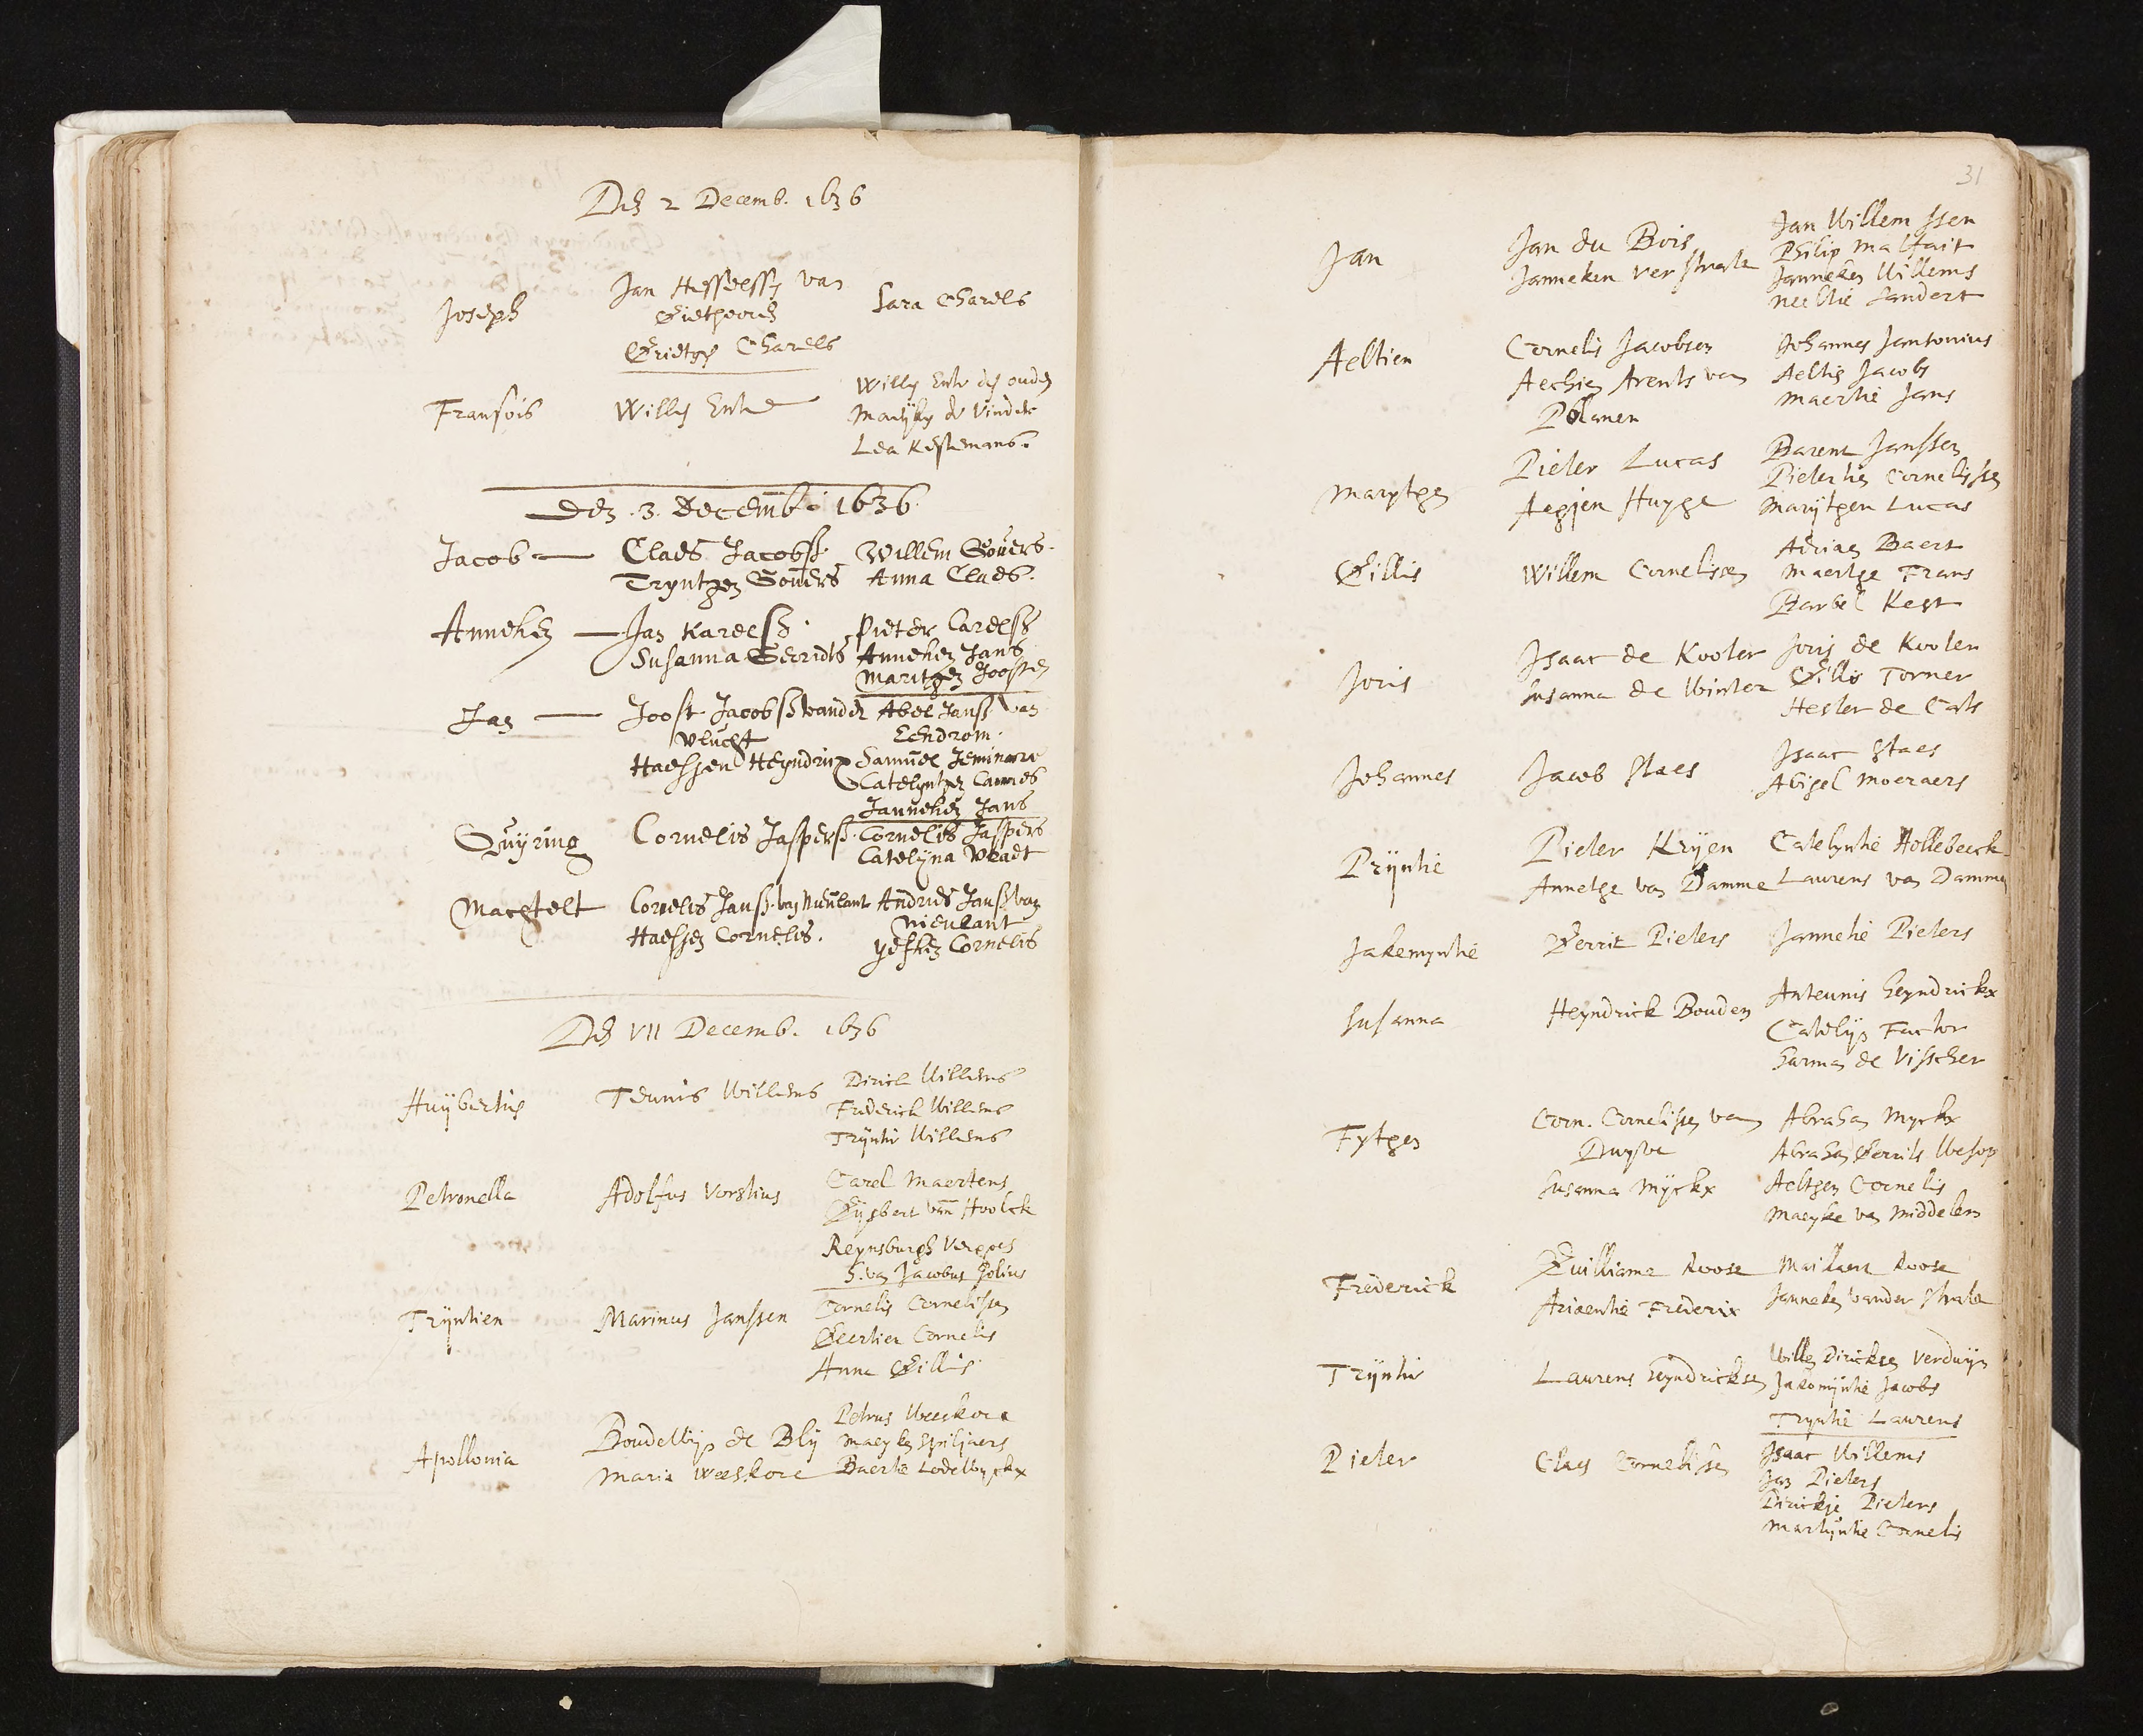 Den 2 Decemb. 1636
Joseph
Jan Hesselssen van
Giethooren
Grietgen Charels
Sara Charels
Fransois
Willem Ente
Willem Ente den ouden
Maeijken de Vinder
Lea Kestemans.
Den .3. Decemb. 1636.
Jacob — Claes Jacobss. Willem Govers.
Tryntgen Govers Anna Claes.
Anneken — Jan Karelss. Pieter Carelss
Susanna Gerridts Anneken Jans
Maritgen Joosten
Jan — Joost Jacobss vander Abel Janss van
Vlucht Eendrom.
Haesgen Heyndrix Samuel
Catelyntgen
Janneken Jans
Quyring Cornelis Jaspers. Cornelis Jaspers
Catelyna
Machtelt Cornelis Janss. van Nieulant Andries Janss van
Nieulant
Haesgen Cornelis. Yefken Cornelis
Den VII Decemb. 1636
Huijbertus Teunis Willems
Dirick Willems
Frederick Willems
Trijntie Willems
Petronella Adolfus Vorstius
Carel Maertens
Gijsbert van Hoolck
Reynsburgh
H. van Jacobus Golius
Trijntien Marinus Janssen
Cornelis Cornelissen
Geertien Cornelis
Anna Gillis
Apollonia
Boudewijn de Blij
Maria Weeskore
Petrus Weeskore
Maeyken Spiljaers
Baertie Lodewyckx
31
Jan
Jan du Bois
Janneken Verstrate
Jan Willemssen
Philip Malfait
Janneken Willems
Neeltie Sandert
Aeltien
Cornelis Jacobsen
Aechien Arents van
Polanen
Johannes Jansonius
Aeltie Jacobs
Maertie Jans
Marytgen
Pieter Lucas
Aegjen Huyge
Barent Janssen
Pietertien Cornelissen
Marijtgen Lucas
Gillis
Willem Cornelissen
Adriaen Baert
Maertge Frans
Barbel Kest
Joris
Isaac de Kooler
Susanna de Winter
Joris de Koolen
Gillis Torner
Hester de Cats
Johannes
Jacob Staes
Isaac Staes
Abigel Moeraers
Prijntie
Pieter Krijen
Annetge van Damme
Catelyntie Hollebeeck
Laurens van Damme
Jakemyntie
Gerrit Pieters
Jannetie Pieters
Susanna
Heyndrick Bouden
Anteunis Heyndrickx
Catelijn Factor
Harman de Visscher
Fytgen
Corn. Cornelissen van
Duyve
Susanna Mijckx
Abraham Myckx
Abraham Gerrits Wesop
Aeltgen Cornelis
Maeyke van Middelen
Frederick
Guilliame Roose
Ariaentie Frederix
Maillaert Roose
Janneken vander Strate
Trijntie
Laurens Heyndricksen
Willem Dircksen Verduijn
Jakomijntie Jacobs
Tryntie Laurens
Pieter
Claes Cornelissen
Isaac Willems
Jan Pieters
Dirickje Pieters
Martijntie Cornelis